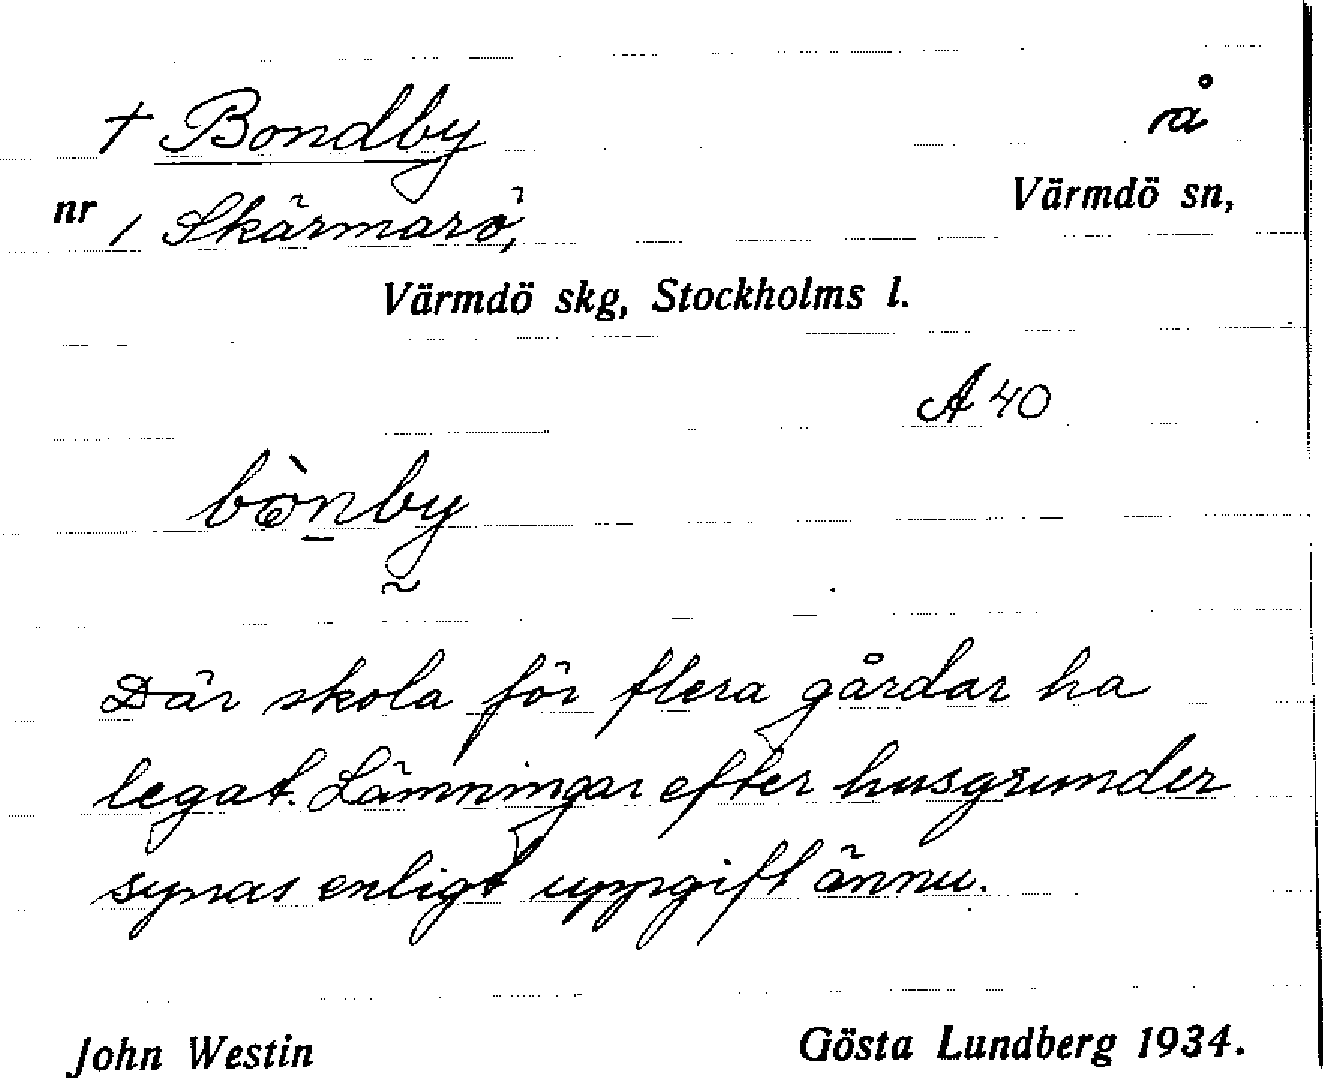 † Bondby å
nr 1 Skärmarö, Värmdö sn,
Värmdö skg, Stockholms l.
A 40
bò̱nby
Där skola för flera gårdar ha
legat. Lämningar efter husgrunder
synas enligt uppgift ännu.
John Westin Gösta Lundberg 1934.